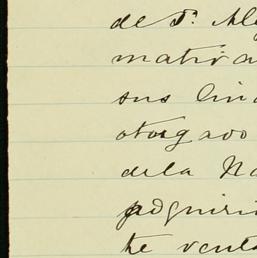 de S. Al
mativa
sus lin
otorgado
de la No
adquiri
he venta